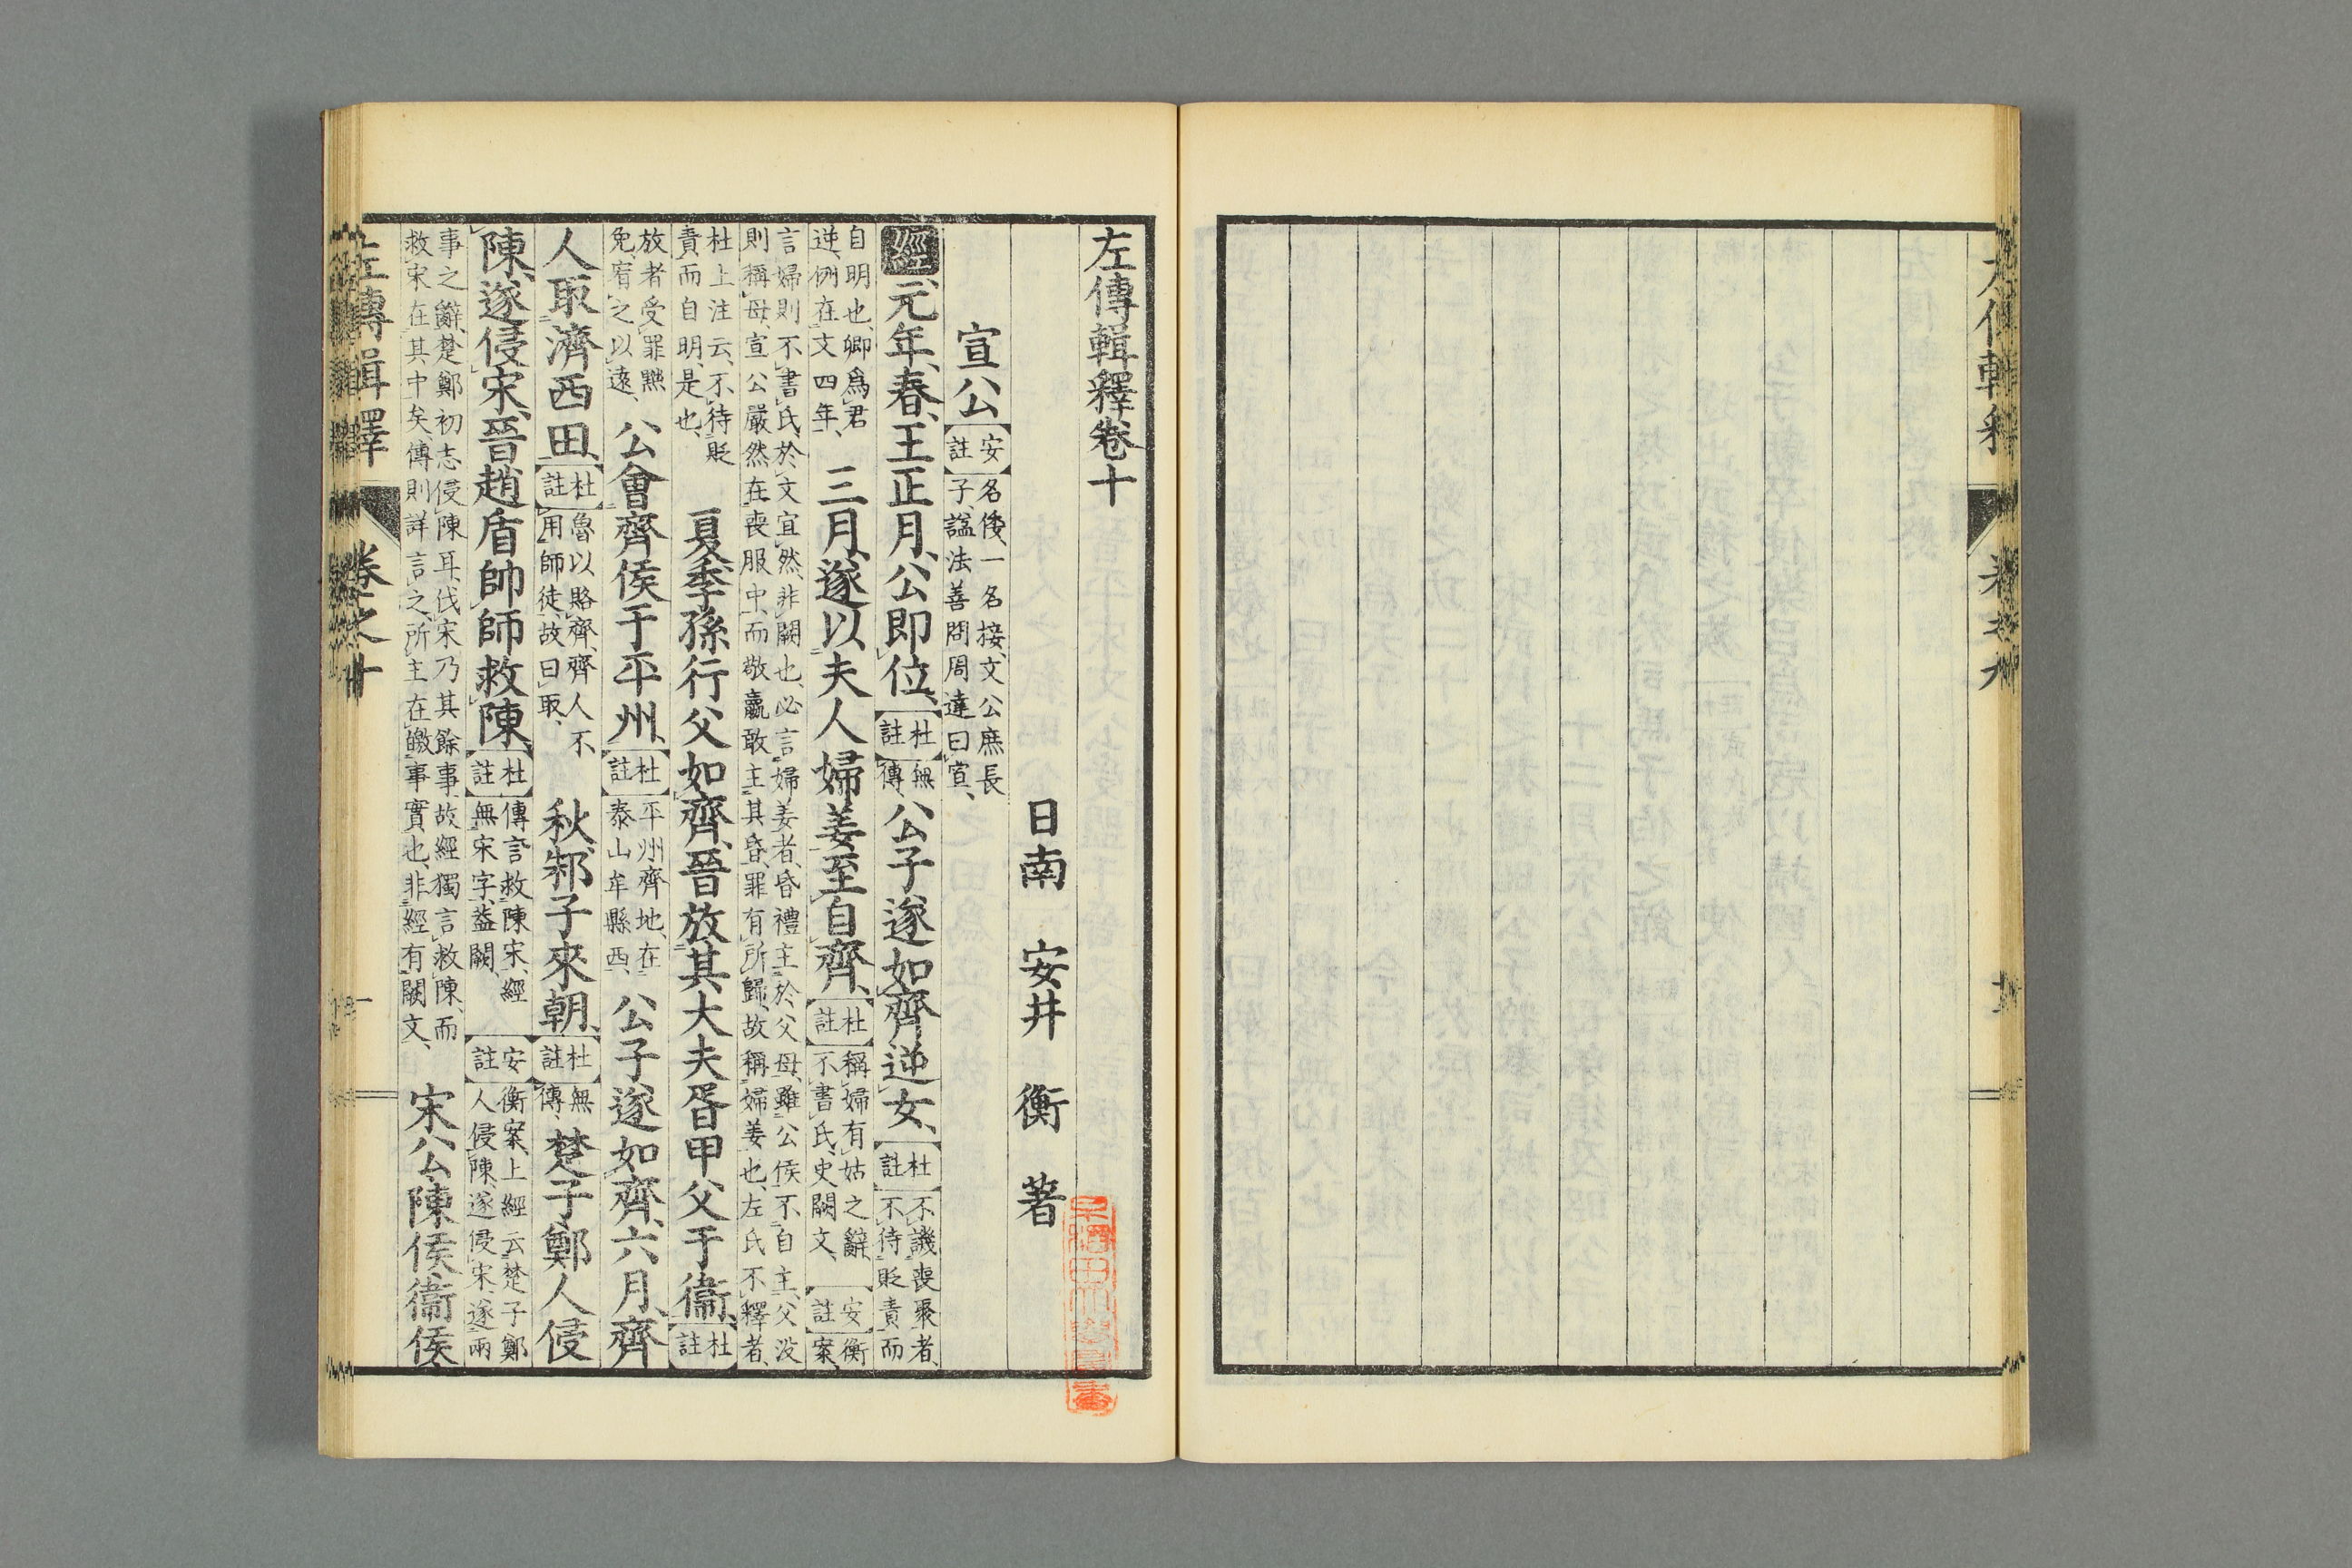 左傳輯釋卷十
日南 安井 衡 著
宣公【安註】名倭、一名接、文公庶長子、謚法善問周達曰宣、
經、元年、春、王正月、公即位、【杜註】無傳、公子遂如齊逆女、【杜註】不譏喪娶者、不待貶責而
自明也、卿爲君逆、例在文四年、三月、遂以夫人婦姜至自齊、【杜註】稱婦有姑之辭、不書氏、史闕文、【安註】衡案、
言婦則不書氏、於文宜然、非闕也、必言婦姜者、昏禮主於父母、雖公侯不自主、父没則稱母、宣公嚴然在喪服中、而敬嬴敢主其昏、罪有所歸、故稱婦姜也、左氏不釋者、
杜上注云、不待貶責而自明、是也、夏、季孫行父如齊、晉放其大夫胥甲父于衞、【杜註】
放者受罪黜免、宥之以遠、公會齊侯于平州、【杜註】平州齊地、在泰山牟縣西、公子遂如齊、六月、齊
人取濟西田、【杜註】魯以賂齊、齊人不用師徒、故曰取、秋、邾子來朝、【杜註】無傳、楚子鄭人侵
陳、遂侵宋、晉趙盾帥師救陳、【杜註】傳言救陳宋、經無宋字、蓋闕、【安註】衡案、上經云楚子鄭人侵陳、遂侵宋、遂兩
事之辭、楚鄭初志侵陳耳、伐宋乃其餘事、故經獨言救陳、而救宋在其中矣、傳則詳言之、所主在皦事實也、非經有闕文、宋公陳侯衞侯
左傳輯釋 卷之十